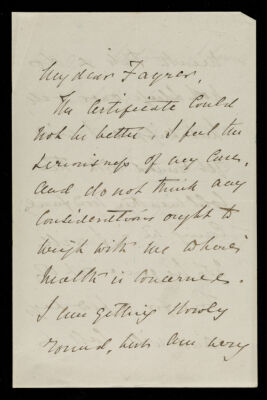 My dear Fayrer,
The Certificate could
not be better. I feel the
seriousness of my case,
and do not think any
considerations ought to
weigh with me where
health is concerned.
I am getting slowly
round, but am very